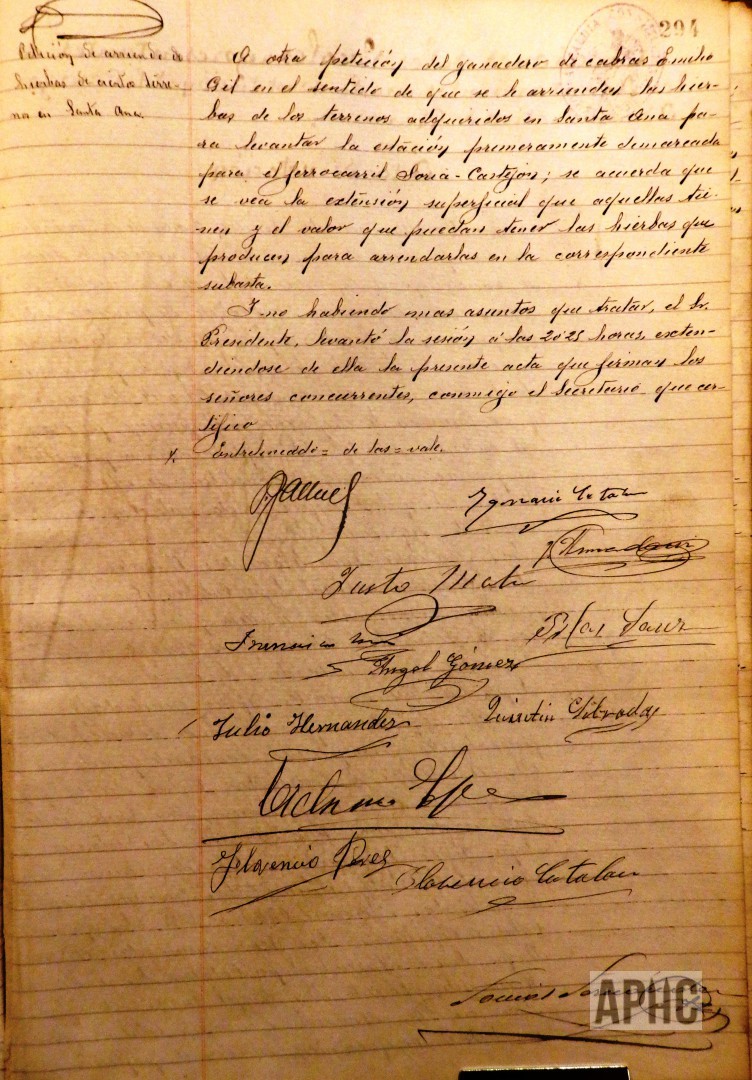 294
Petición de arriendo de
hierbas de ciertos terre-
nos en Santa Ana.
A otra petición del ganadero de cabras Emilio
Gil en el sentido de que se le arrienden las hier-
bas de los terrenos adquiridos en Santa Ana pa-
ra levantar la estación primeramente demarcada
para el ferrocarril Soria-Castejón; se acuerda que
se vea la extensión superficial que aquellas tie-
nen y el valor que puedan tener las hierbas que
producen para arrendarlas en la correspondiente
subasta.
Y no habiendo mas asuntos que tratar, el Sr.
Presidente, levantó la sesión á las 20'25 horas, exten-
diéndose de ella la presente acta que firman los
señores concurrentes, conmigo el Secretario que cer-
tifico
Entrelineado = de las = vale.
Ygnacio Catalan
Justo Mata
Francisco
Blas Sanz
Angel Gómez
Julio Hernandez
Quintin
Florencio Perez
Florencio Catalan
APHC